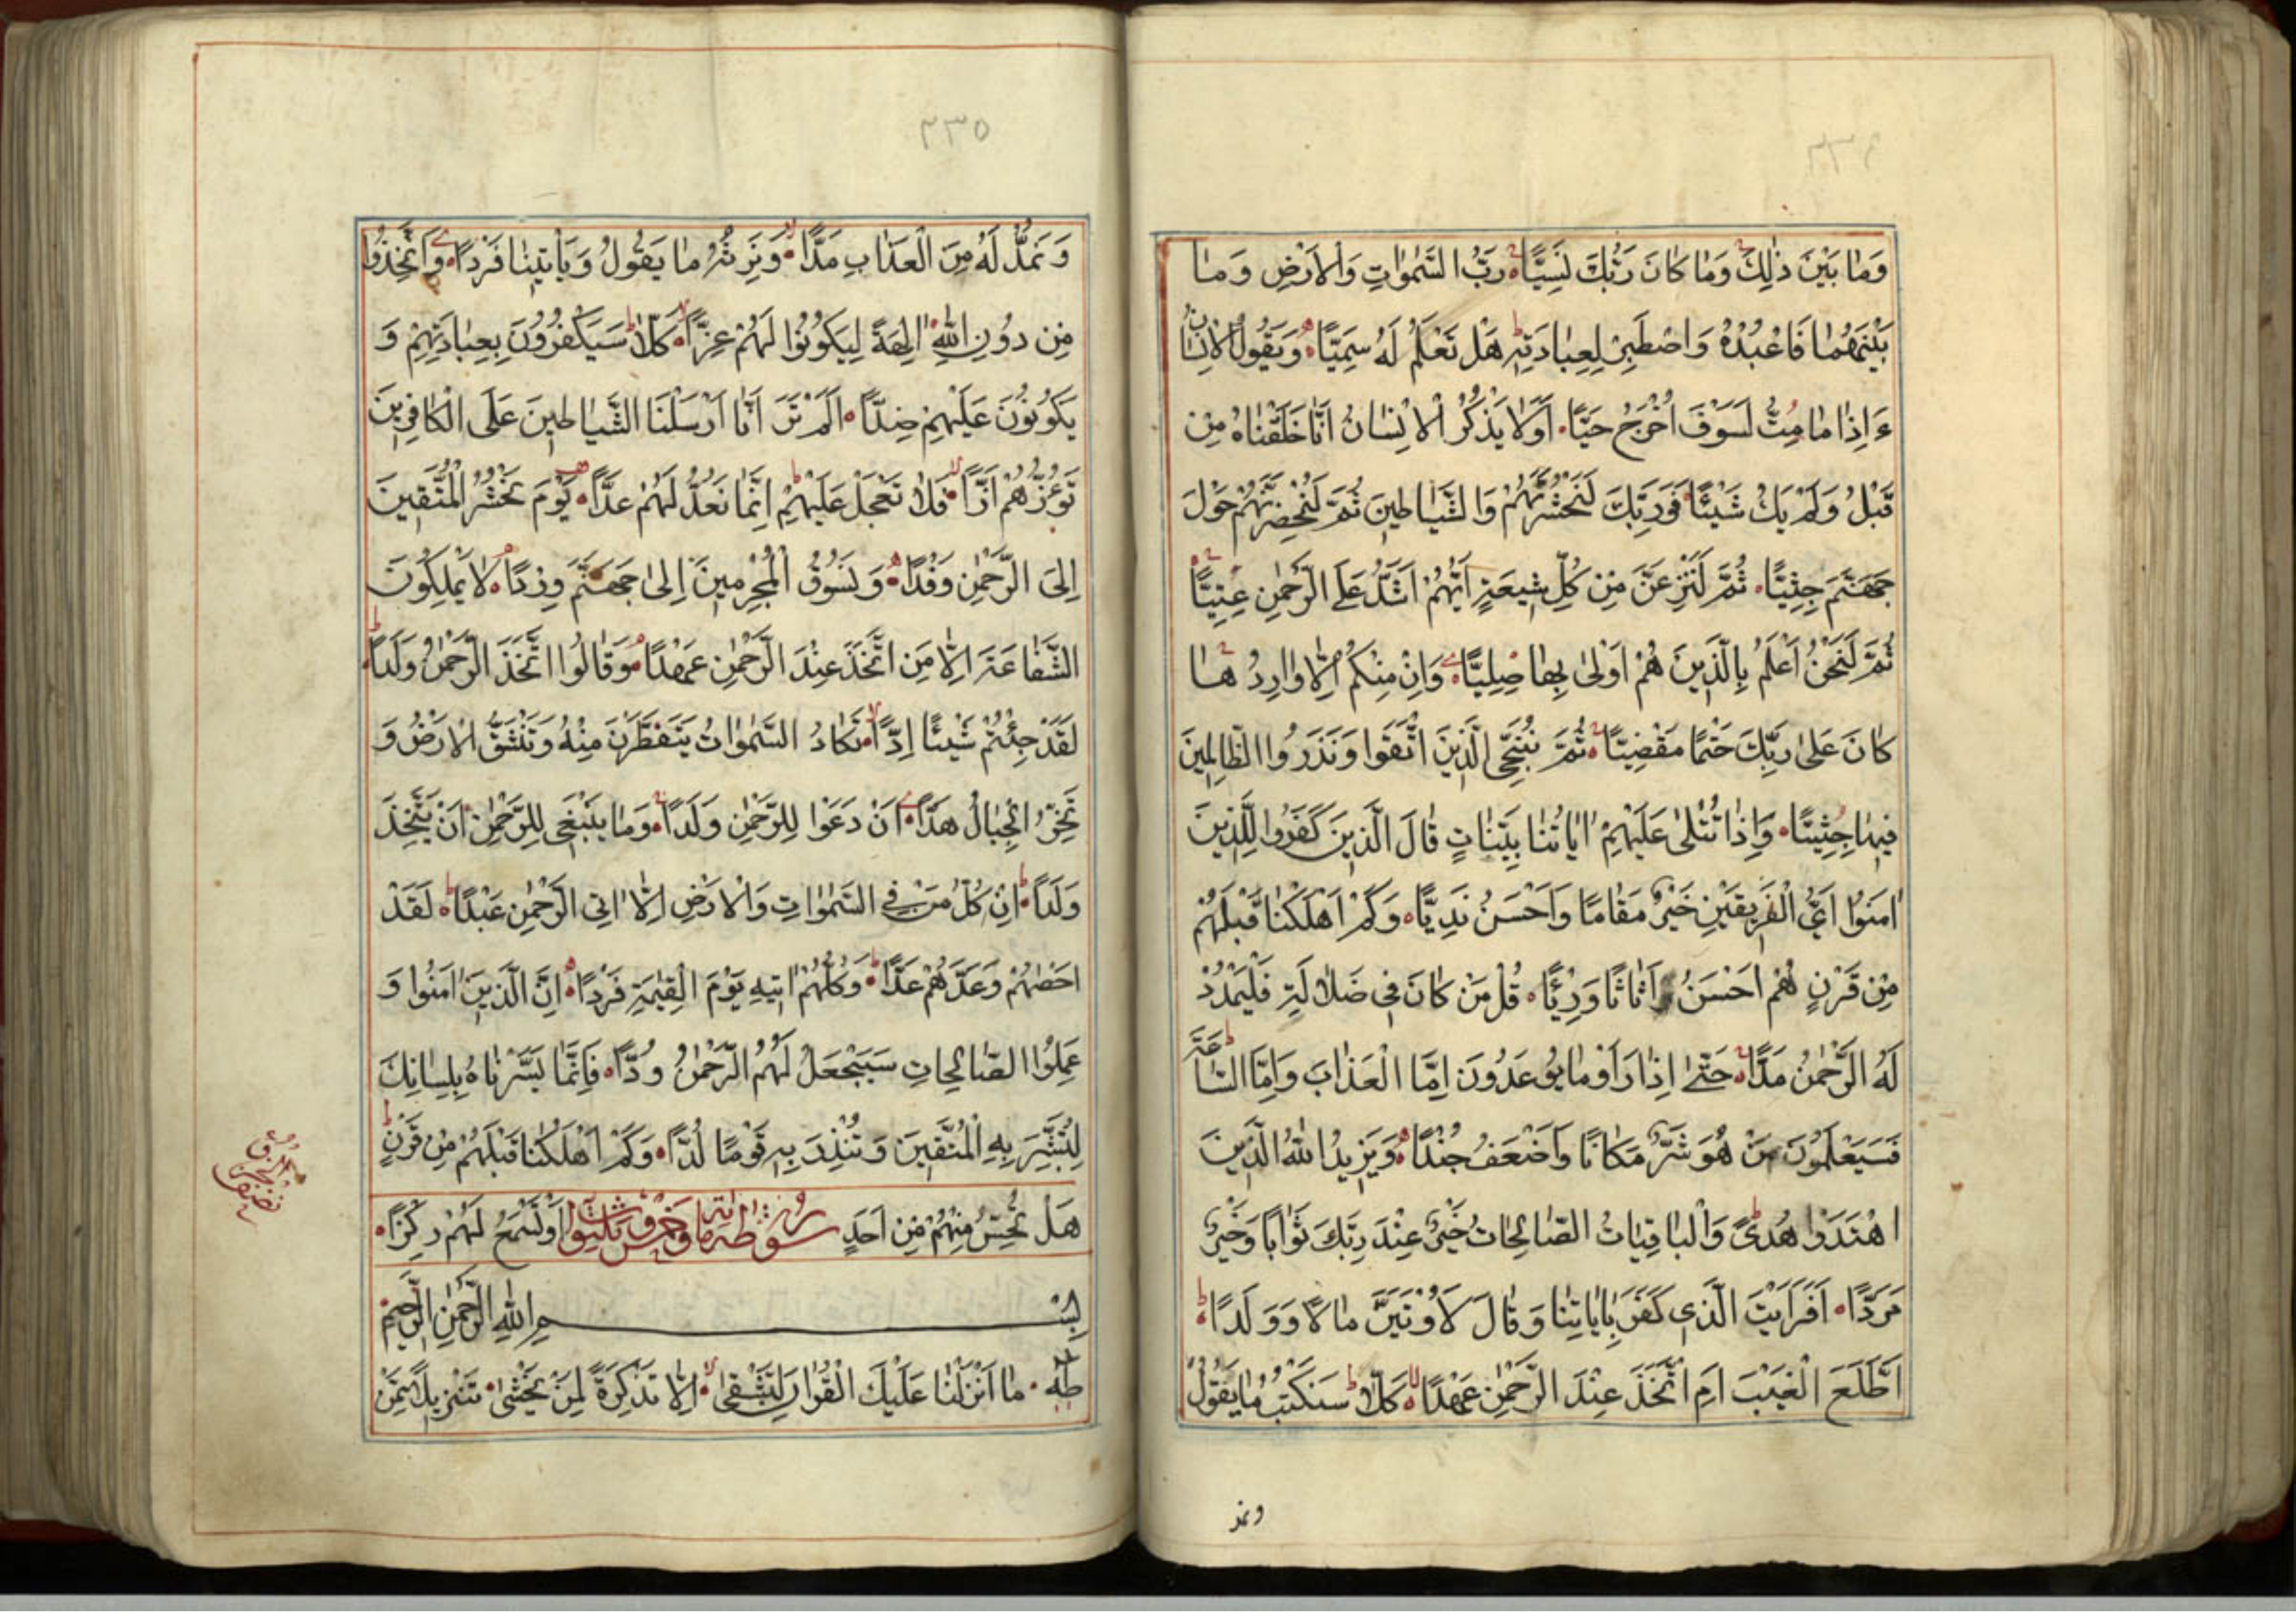 ٢٣٤
وَمَا بَيْنَ ذٰلِكَ وَمَا كَانَ رَبُّكَ نَسِيًّا رَبُّ السَّمٰوَاتِ وَالْاَرْضِ وَمَا
بَيْنَهُمَا فَاعْبُدْهُ وَاصْطَبِرْ لِعِبَادَتِهِ هَلْ تَعْلَمُ لَهُ سَمِيًّا وَيَقُولُ الْاِنْسَانُ
ءَاِذَا مَا مِتُّ لَسَوْفَ اُخْرَجُ حَيًّا اَوَلَا يَذْكُرُ الْاِنْسَانُ اَنَّا خَلَقْنَاهُ مِنْ
قَبْلُ وَلَمْ يَكُ شَيْئًا فَوَرَبِّكَ لَنَحْشُرَنَّهُمْ وَالشَّيَاطِينَ ثُمَّ لَنُحْضِرَنَّهُمْ حَوْلَ
جَهَنَّمَ جِثِيًّا ثُمَّ لَنَنْزِعَنَّ مِنْ كُلِّ شِيعَةٍ اَيُّهُمْ اَشَدُّ عَلَى الرَّحْمٰنِ عِتِيًّا
ثُمَّ لَنَحْنُ اَعْلَمُ بِالَّذِينَ هُمْ اَوْلٰى بِهَا صِلِيًّا وَاِنْ مِنْكُمْ اِلَّا وَارِدُهَا
كَانَ عَلٰى رَبِّكَ حَتْمًا مَقْضِيًّا ثُمَّ نُنَجِّي الَّذِينَ اتَّقَوْا وَنَذَرُوا الظَّالِمِينَ
فِيهَا جِثِيًّا وَاِذَا تُتْلٰى عَلَيْهِمْ اٰيَاتُنَا بَيِّنَاتٍ قَالَ الَّذِينَ كَفَرُوا لِلَّذِينَ
اٰمَنُوا اَيُّ الْفَرِيقَيْنِ خَيْرٌ مَقَامًا وَاَحْسَنُ نَدِيًّا وَكَمْ اَهْلَكْنَا قَبْلَهُمْ
مِنْ قَرْنٍ هُمْ اَحْسَنُ اَثَاثًا وَرِءْيًا قُلْ مَنْ كَانَ فِي ضَلَالَةِ فَلْيَمْدُدْ
لَهُ الرَّحْمٰنُ مَدًّا حَتّٰى اِذَا رَاَوْا مَا يُوعَدُونَ اِمَّا الْعَذَابَ وَاِمَّا السَّاعَةَ
فَسَيَعْلَمُونَ مَنْ هُوَ شَرٌّ مَكَانًا وَاَضْعَفُ جُنْدًا وَيَزِيدُ اللّٰهُ الَّذِينَ
اهْتَدَوْا هُدًى وَالْبَاقِيَاتُ الصَّالِحَاتُ خَيْرٌ عِنْدَ رَبِّكَ ثَوَابًا وَخَيْرٌ
مَرَدًّا اَفَرَاَيْتَ الَّذِي كَفَرَ بِاٰيَاتِنَا وَقَالَ لَاُوتَيَنَّ مَالًا وَوَلَدًا
اَطَّلَعَ الْغَيْبَ اَمِ اتَّخَذَ عِنْدَ الرَّحْمٰنِ عَهْدًا كَلَّا سَنَكْتُبُ مَا يَقُولُ
ونمد
٢٣٥
وَنَمُدُّ لَهُ مِنَ الْعَذَابِ مَدًّا وَنَرِثُهُ مَا يَقُولُ وَيَاْتِينَا فَرْدًا وَاتَّخَذُوا
مِنْ دُونِ اللّٰهِ اٰلِهَةً لِيَكُونُوا لَهُمْ عِزًّا كَلَّا سَيَكْفُرُونَ بِعِبَادَتِهِمْ وَ
يَكُونُونَ عَلَيْهِمْ ضِدًّا اَلَمْ تَرَ اَنَّا اَرْسَلْنَا الشَّيَاطِينَ عَلَى الْكَافِرِينَ
تَؤُزُّهُمْ اَزًّا فَلَا تَعْجَلْ عَلَيْهِمْ اِنَّمَا نَعُدُّ لَهُمْ عَدًّا يَوْمَ نَحْشُرُ الْمُتَّقِينَ
اِلَى الرَّحْمٰنِ وَفْدًا وَنَسُوقُ الْمُجْرِمِينَ اِلٰى جَهَنَّمَ وِرْدًا لَا يَمْلِكُونَ
الشَّفَاعَةَ اِلَّا مَنِ اتَّخَذَ عِنْدَ الرَّحْمٰنِ عَهْدًا وَقَالُوا اتَّخَذَ الرَّحْمٰنُ وَلَدًا
لَقَدْ جِئْتُمْ شَيْئًا اِدًّا تَكَادُ السَّمٰوَاتُ يَتَفَطَّرْنَ مِنْهُ وَتَنْشَقُّ الْاَرْضُ وَ
تَخِرُّ الْجِبَالُ هَدًّا اَنْ دَعَوْا لِلرَّحْمٰنِ وَلَدًا وَمَا يَنْبَغِي لِلرَّحْمٰنِ اَنْ يَتَّخِذَ
وَلَدًا اِنْ كُلُّ مَنْ فِي السَّمٰوَاتِ وَالْاَرْضِ اِلَّا اٰتِي الرَّحْمٰنِ عَبْدًا لَقَدْ
اَحْصٰيهُمْ وَعَدَّهُمْ عَدًّا وَكُلُّهُمْ اٰتِيهِ يَوْمَ الْقِيٰمَةِ فَرْدًا اِنَّ الَّذِينَ اٰمَنُوا وَ
عَمِلُوا الصَّالِحَاتِ سَيَجْعَلُ لَهُمُ الرَّحْمٰنُ وُدًّا فَاِنَّمَا يَسَّرْنَاهُ بِلِسَانِكَ
لِتُبَشِّرَ بِهِ الْمُتَّقِينَ وَتُنْذِرَ بِهِ قَوْمًا لُدًّا وَكَمْ اَهْلَكْنَا قَبْلَهُمْ مِنْ قَرْنٍ
هَلْ تُحِسُّ مِنْهُمْ مِنْ اَحَدٍ سورة طه مائة وخمس وثلثون اٰيات اَوْ تَسْمَعُ لَهُمْ رِكْزًا
بِسْمِ اللّٰهِ الرَّحْمٰنِ الرَّحِيمِ
طٰهٰ مَا اَنْزَلْنَا عَلَيْكَ الْقُرْاٰنَ لِتَشْقٰى اِلَّا تَذْكِرَةً لِمَنْ يَخْشٰى تَنْزِيلًا مِمَّنْ